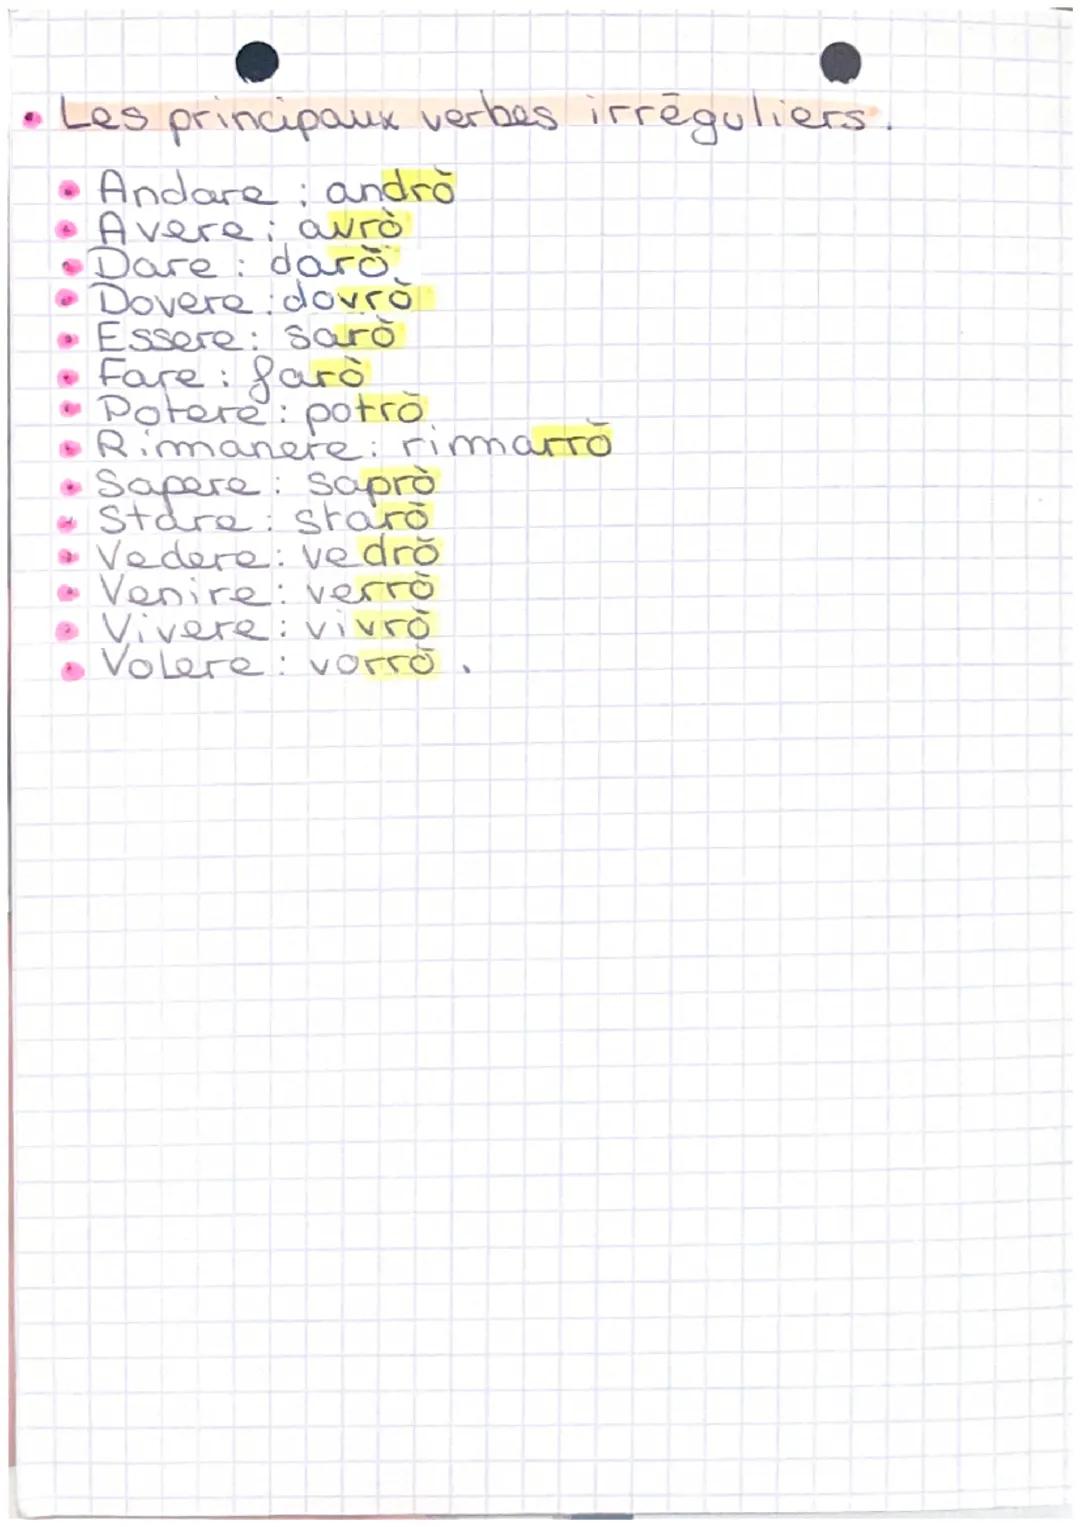 • Les principaux verbes irréguliers.
• Andare : andrò
• Avere : avrò
• Dare : darò
• Dovere : dovrò
• Essere : sarò
• Fare : farò
• Potere : potrò
• Rimanere : rimarrò
• Sapere : saprò
• Stare : starò
• Vedere : vedrò
• Venire : verrò
• Vivere : vivrò
• Volere : vorrò .